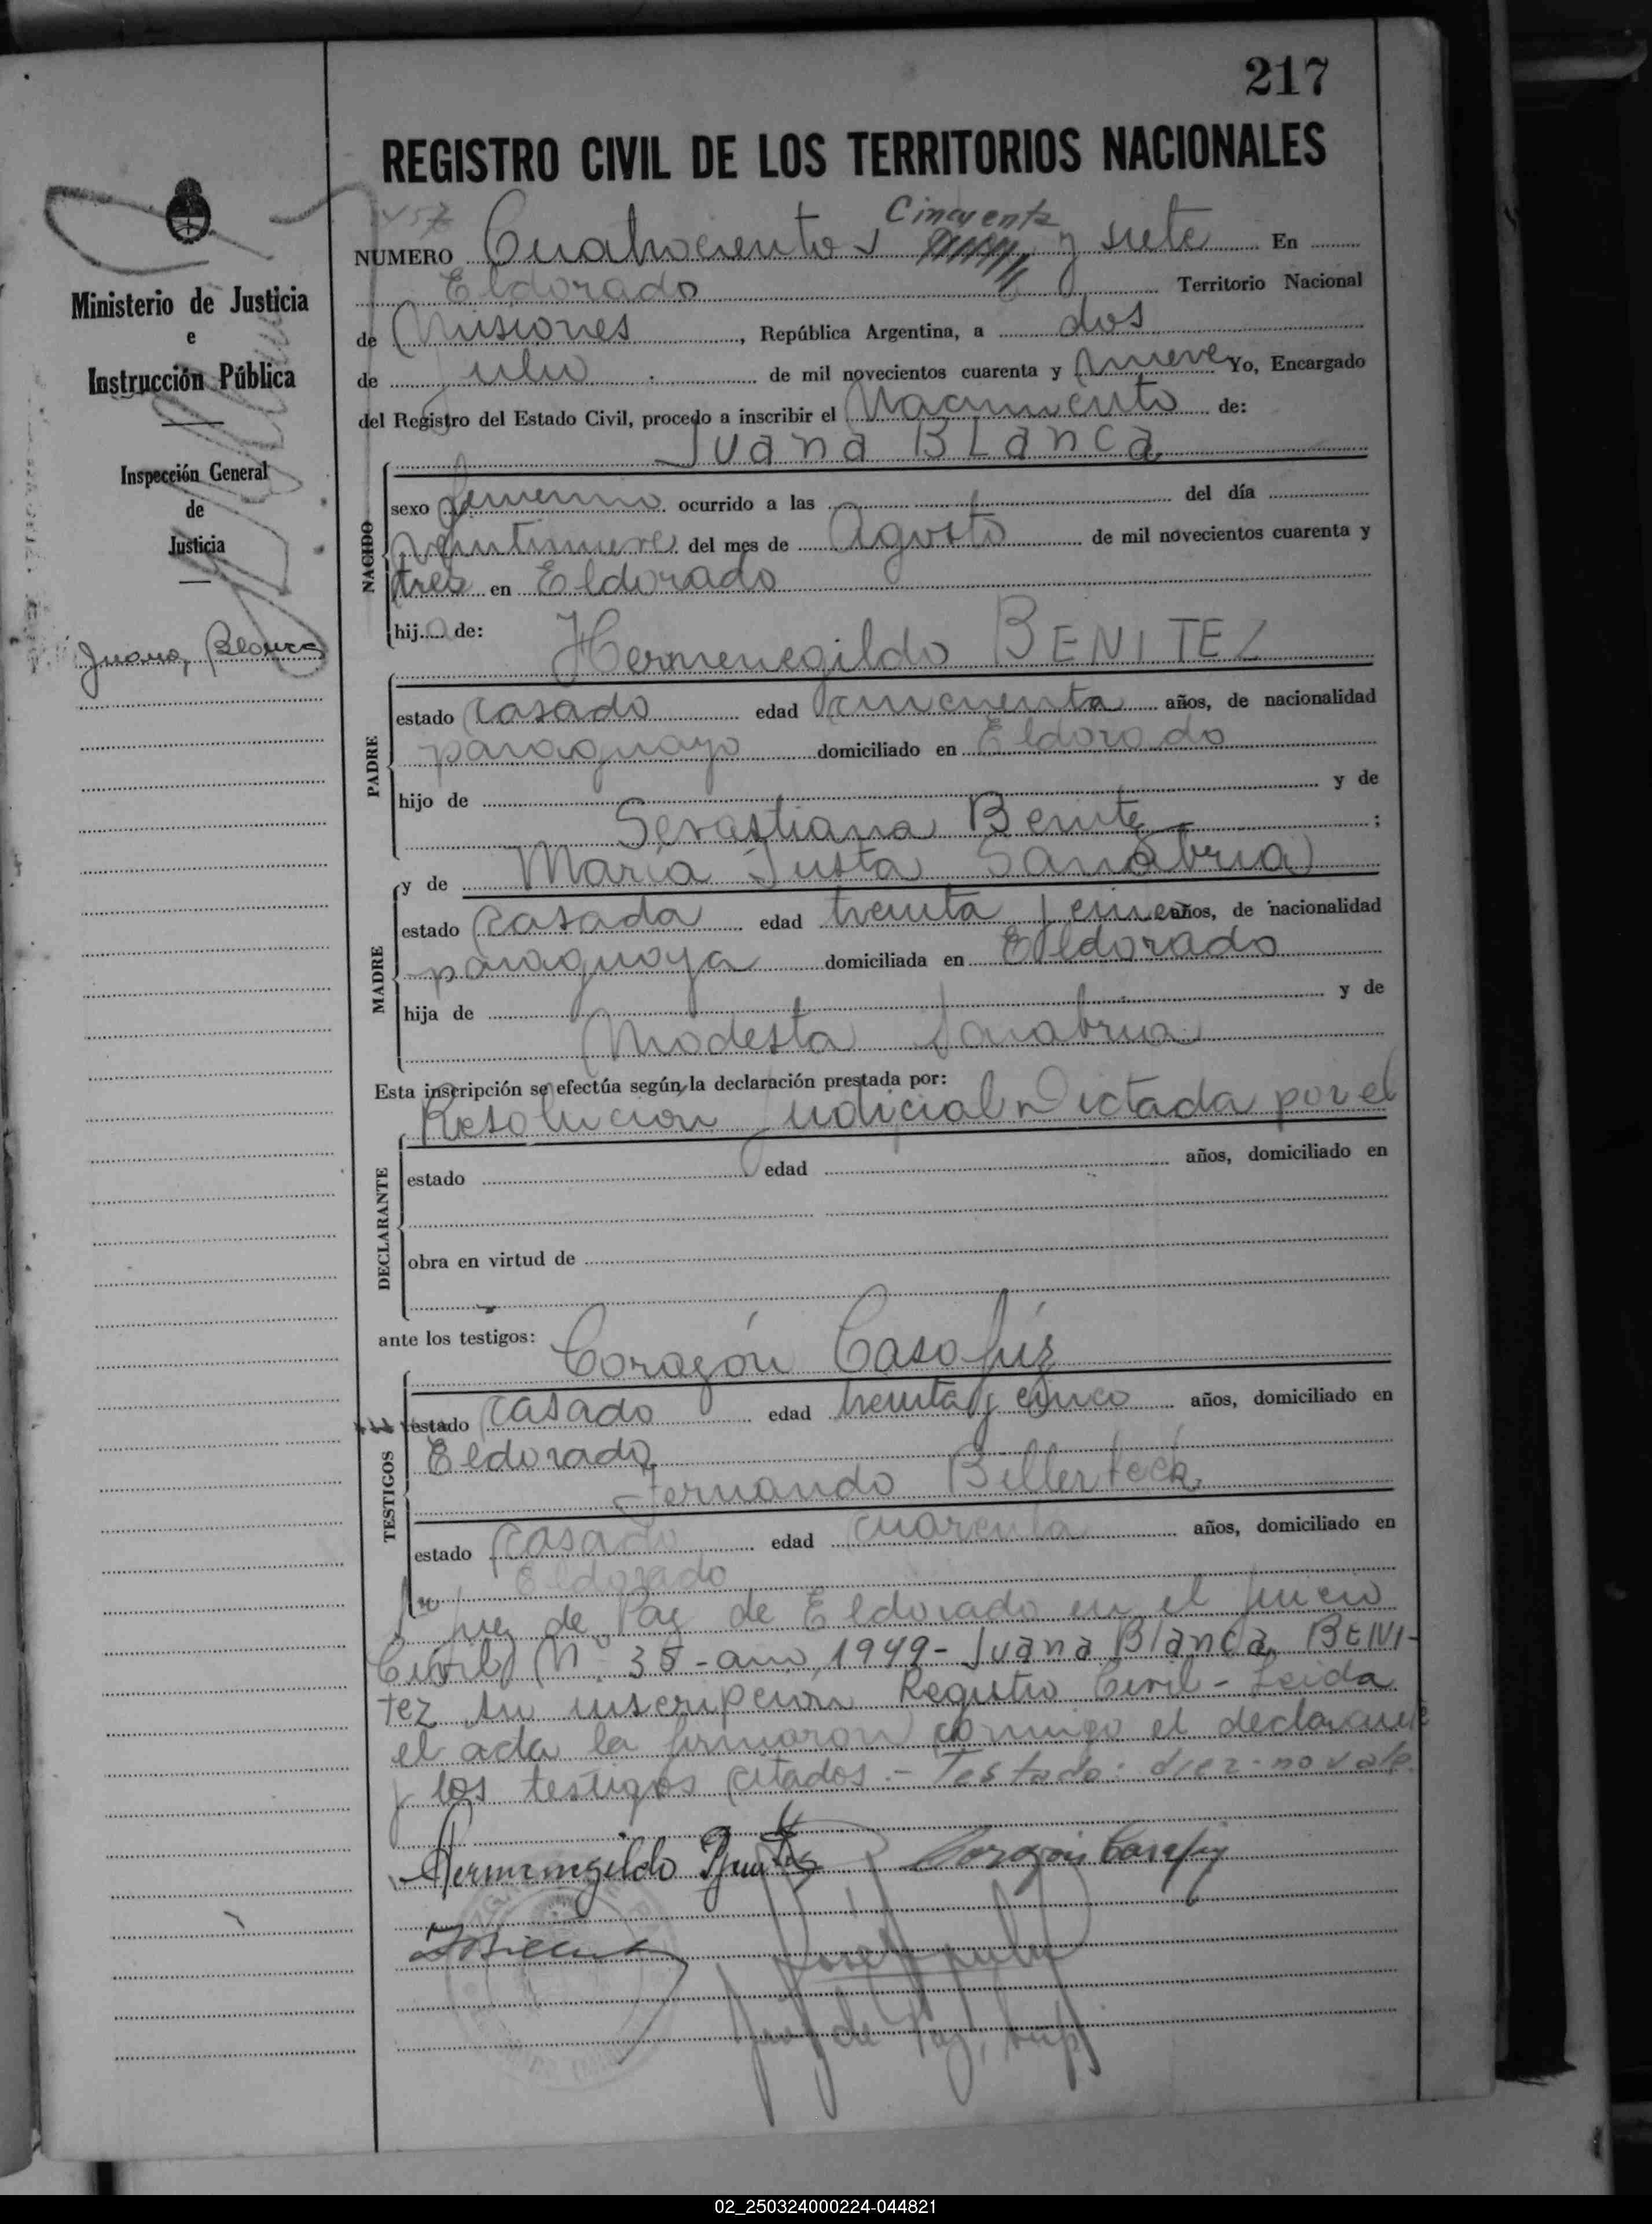 217
REGISTRO CIVIL DE LOS TERRITORIOS NACIONALES
457
Cincuenta
NUMERO Cuatrocientos y siete En
Eldorado Territorio Nacional
de Misiones, República Argentina, a dos
de julio de mil novecientos cuarenta y nueve Yo, Encargado
del Registro del Estado Civil, procedo a inscribir el Nacimiento de:
Juana Blanca
NACIDO
sexo femenino ocurrido a las del día
veintinueve del mes de Agosto de mil novecientos cuarenta y
tres en Eldorado
hija de:
Hermenegildo BENITEZ
PADRE
estado casado edad cincuenta años, de nacionalidad
paraguayo domiciliado en Eldorado
hijo de y de
Sevastiana Benitez;
y de María Justa Sanabria
MADRE
estado casada edad treinta y años, de nacionalidad
paraguaya domiciliada en Eldorado
hija de y de
Modesta Sanabria
Esta inscripción se efectúa según la declaración prestada por:
Resolucion Judicial Dictada por el
DECLARANTE
estado edad años, domiciliado en
obra en virtud de
ante los testigos:
Corazón Casafúz
TESTIGOS
estado casado edad treinta y cinco años, domiciliado en
Eldorado
Fernando Billerbeck
estado casado edad cuarenta años, domiciliado en
Eldorado
juez de Paz de Eldorado en el juicio
Civil Nº 35-año 1949-Juana Blanca BENI-
tez su inscripción Registro Civil - Leida
el acta la firmaron conmigo el declarante
y los testigos citados.- Testado: diez-no vale.
Hermenegildo Benitez Corazón Casafúz
Juez de Paz, Sup
Ministerio de Justicia
e
Instrucción Pública
Inspección General
de
Justicia
Juana, Blanca
02_250324000224-044821